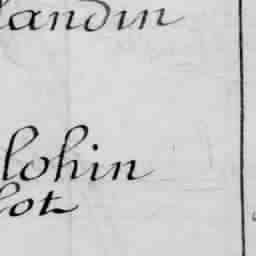 landin
lohin
lot